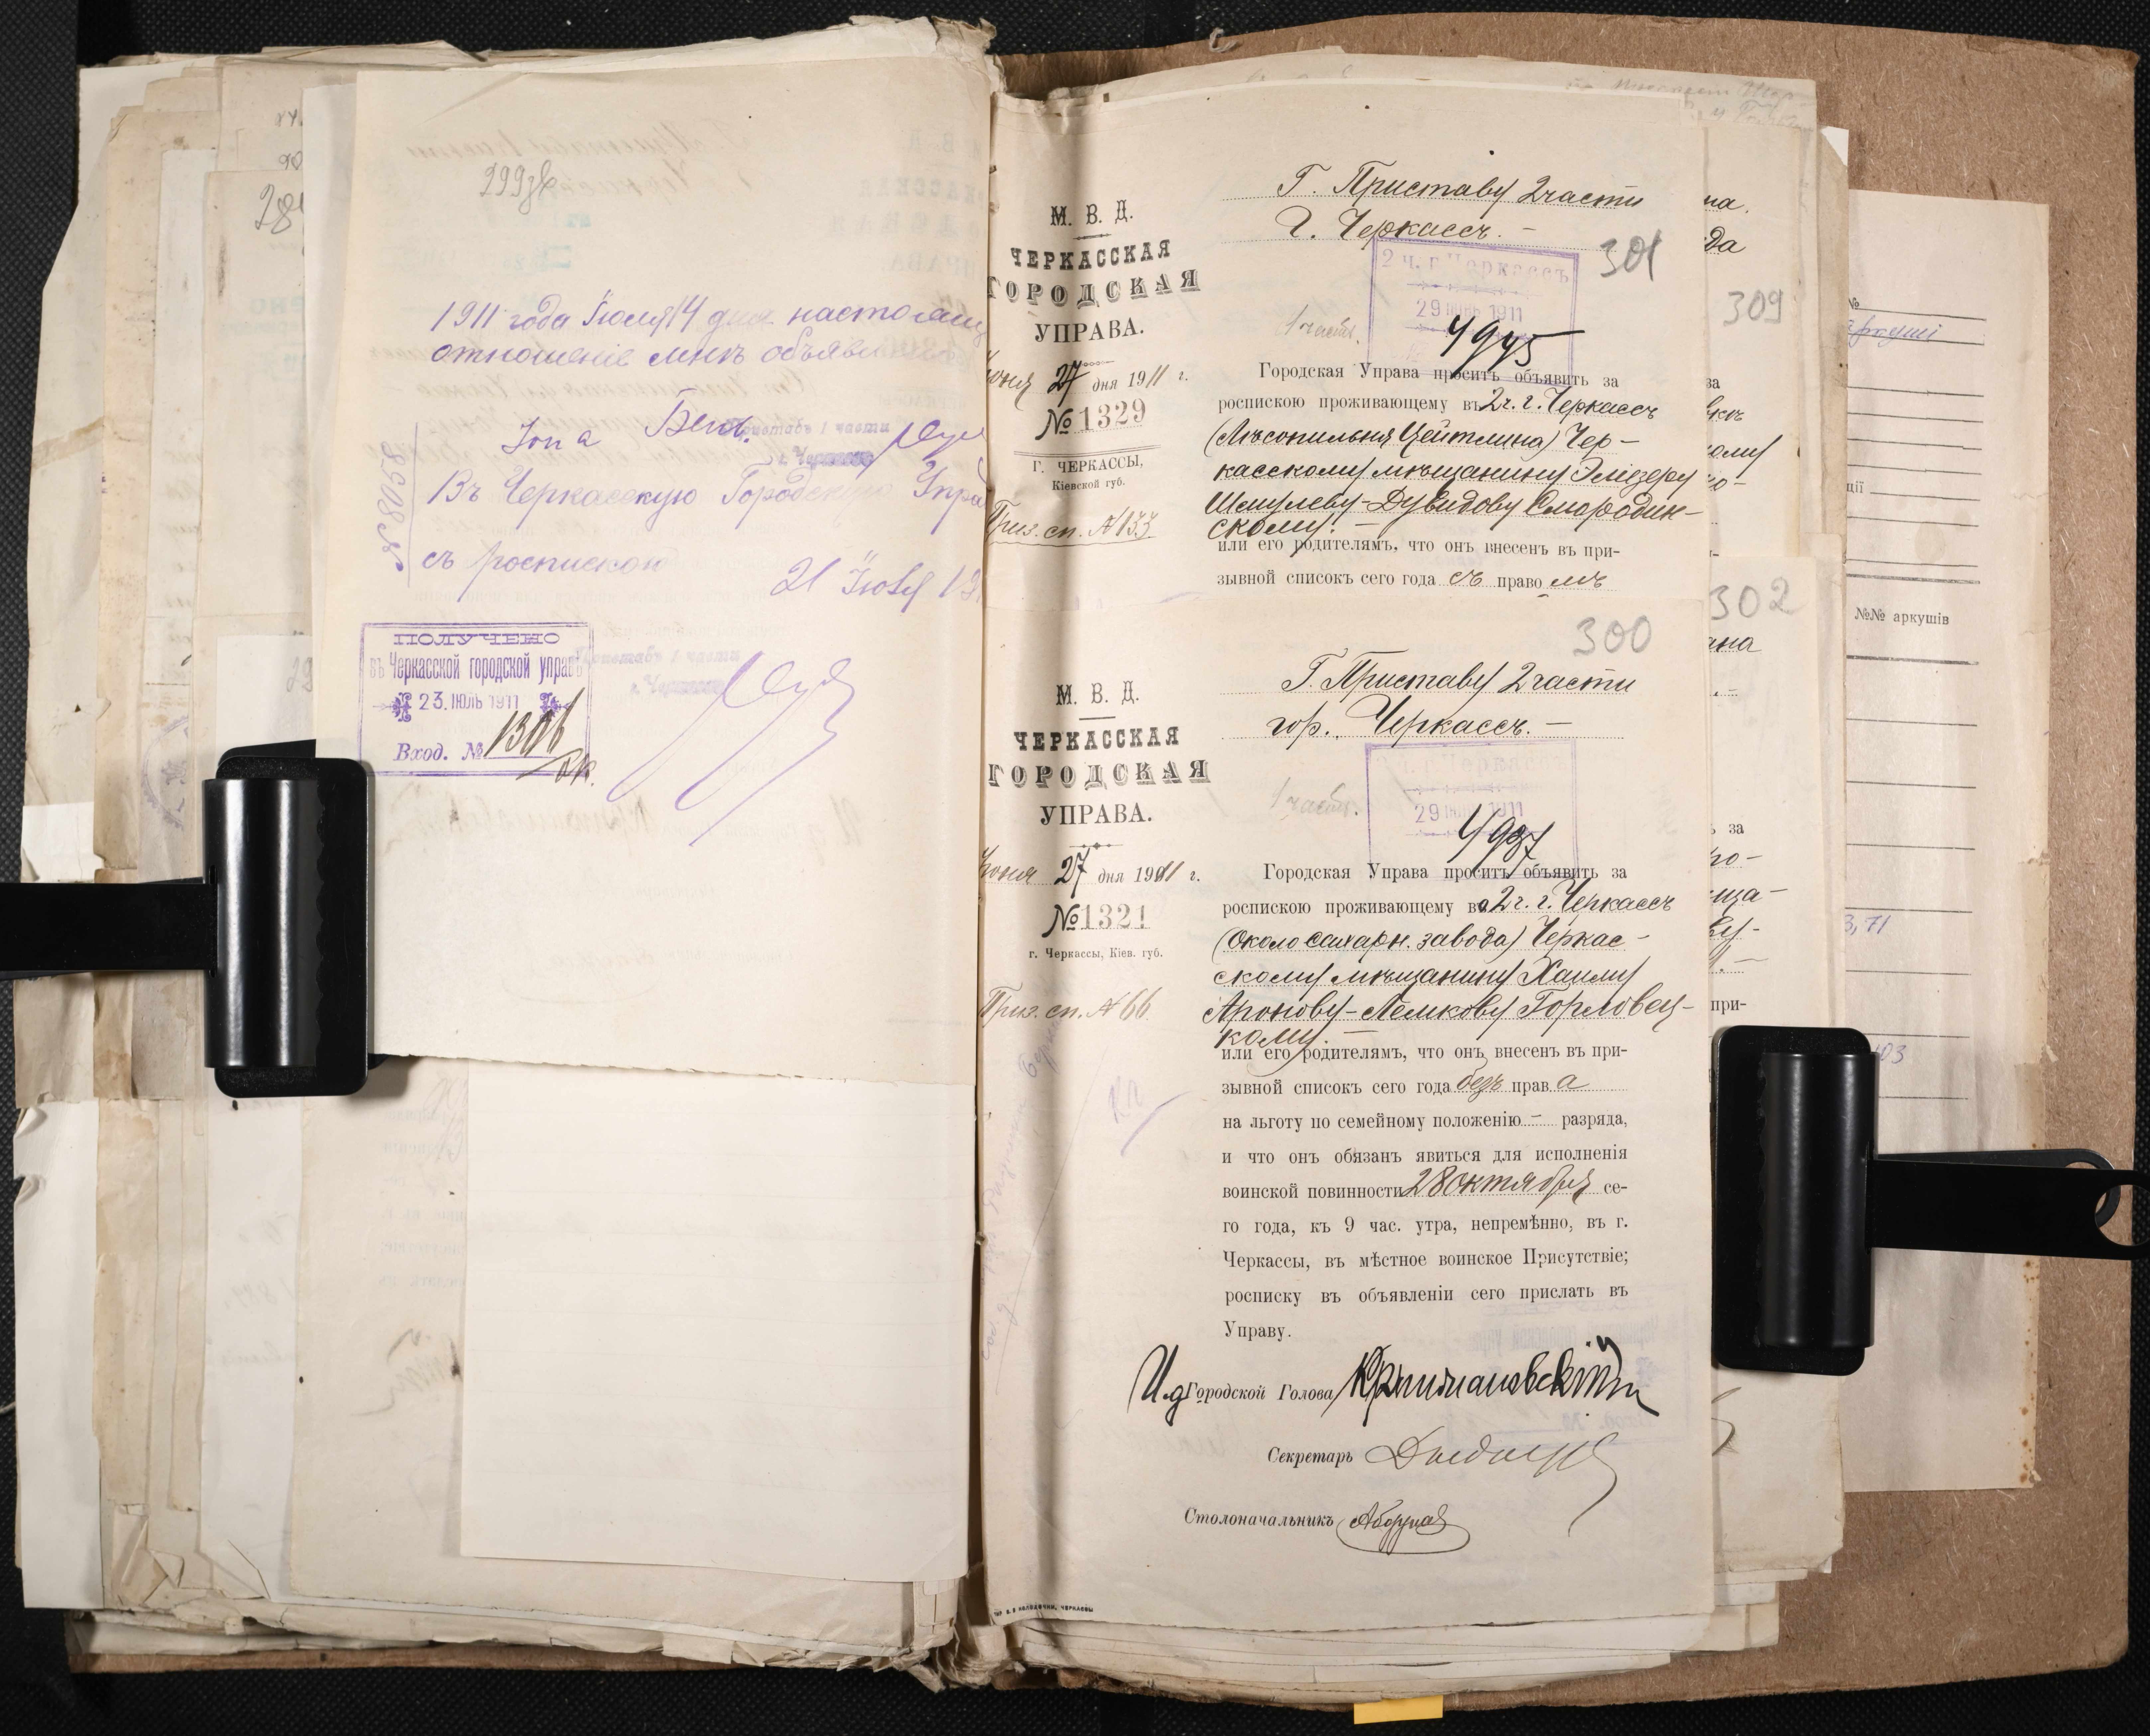 299 зв
1911 года Іюля 14 дня настоящ
отношеніе мнѣ объявл
Іона Бенъ.
Приставъ 1 части
г. Черкассъ
Въ Черкасскую Городскую Упра
съ роспискою
21 Іюля 19
№ 8058
ПОЛУЧЕНО
въ Черкасской городской управѣ
23. ІЮЛЬ 1911
Вход. №
Приставъ 1 части
г. Черкассъ
Г. Приставу 2 части
г. Черкассъ. –
301
М. В. Д.
ЧЕРКАССКАЯ
ГОРОДСКАЯ
УПРАВА.
Іюня 27 дня 1911 г.
№ 1329
Г. ЧЕРКАССЫ,
Кіевской губ.
Приз. сп. № 133
2 ч. г. Черкассъ
29 1911
4945
1 часть.
Городская Управа проситъ объявить за
роспискою проживающему въ 2 ч. г. Черкассъ
(Лѣсопильня Цейтлина) Чер-
касскому мѣщанину Эліезеру
Шмулеву-Дувидову Смородин-
скому. –
или его родителямъ, что онъ внесенъ въ при-
зывной списокъ сего года съ право мъ
300
Г. Приставу 2 части
гор. Черкассъ. –
М. В. Д.
ЧЕРКАССКАЯ
ГОРОДСКАЯ
УПРАВА.
Іюня 27 дня 1911 г.
№ 1321
г. Черкассы, Кіев. губ.
Приз. сп. № 66
ч. г. Черкассъ
29 1911
4937
1 часть.
Городская Управа проситъ объявить за
роспискою проживающему во 2 ч. г. Черкассъ
(Около сахарн. завода) Черкас-
скому мѣщанину Хаиму
Аронову-Лемкову Горловец-
кому. –
или его родителямъ, что онъ внесенъ въ при-
зывной списокъ сего года безъ прав а
на льготу по семейному положенію – разряда,
и что онъ обязанъ явиться для исполненія
воинской повинности 28 октября се-
го года, къ 9 час. утра, непремѣнно, въ г.
Черкассы, въ мѣстное воинское Присутствіе;
росписку въ объявленіи сего прислать въ
Управу.
И.д. Городской Голова
Секретарь
Столоначальникъ
309
302
№№ аркушів